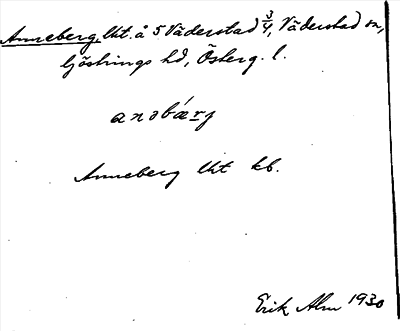 Anneberg, lht. å 5 Väderstad 3/4, Väderstad sn,
Göstrings hd, Österg. l.
anəbærj
Anneberg lht kb.
Erik Alm 1930